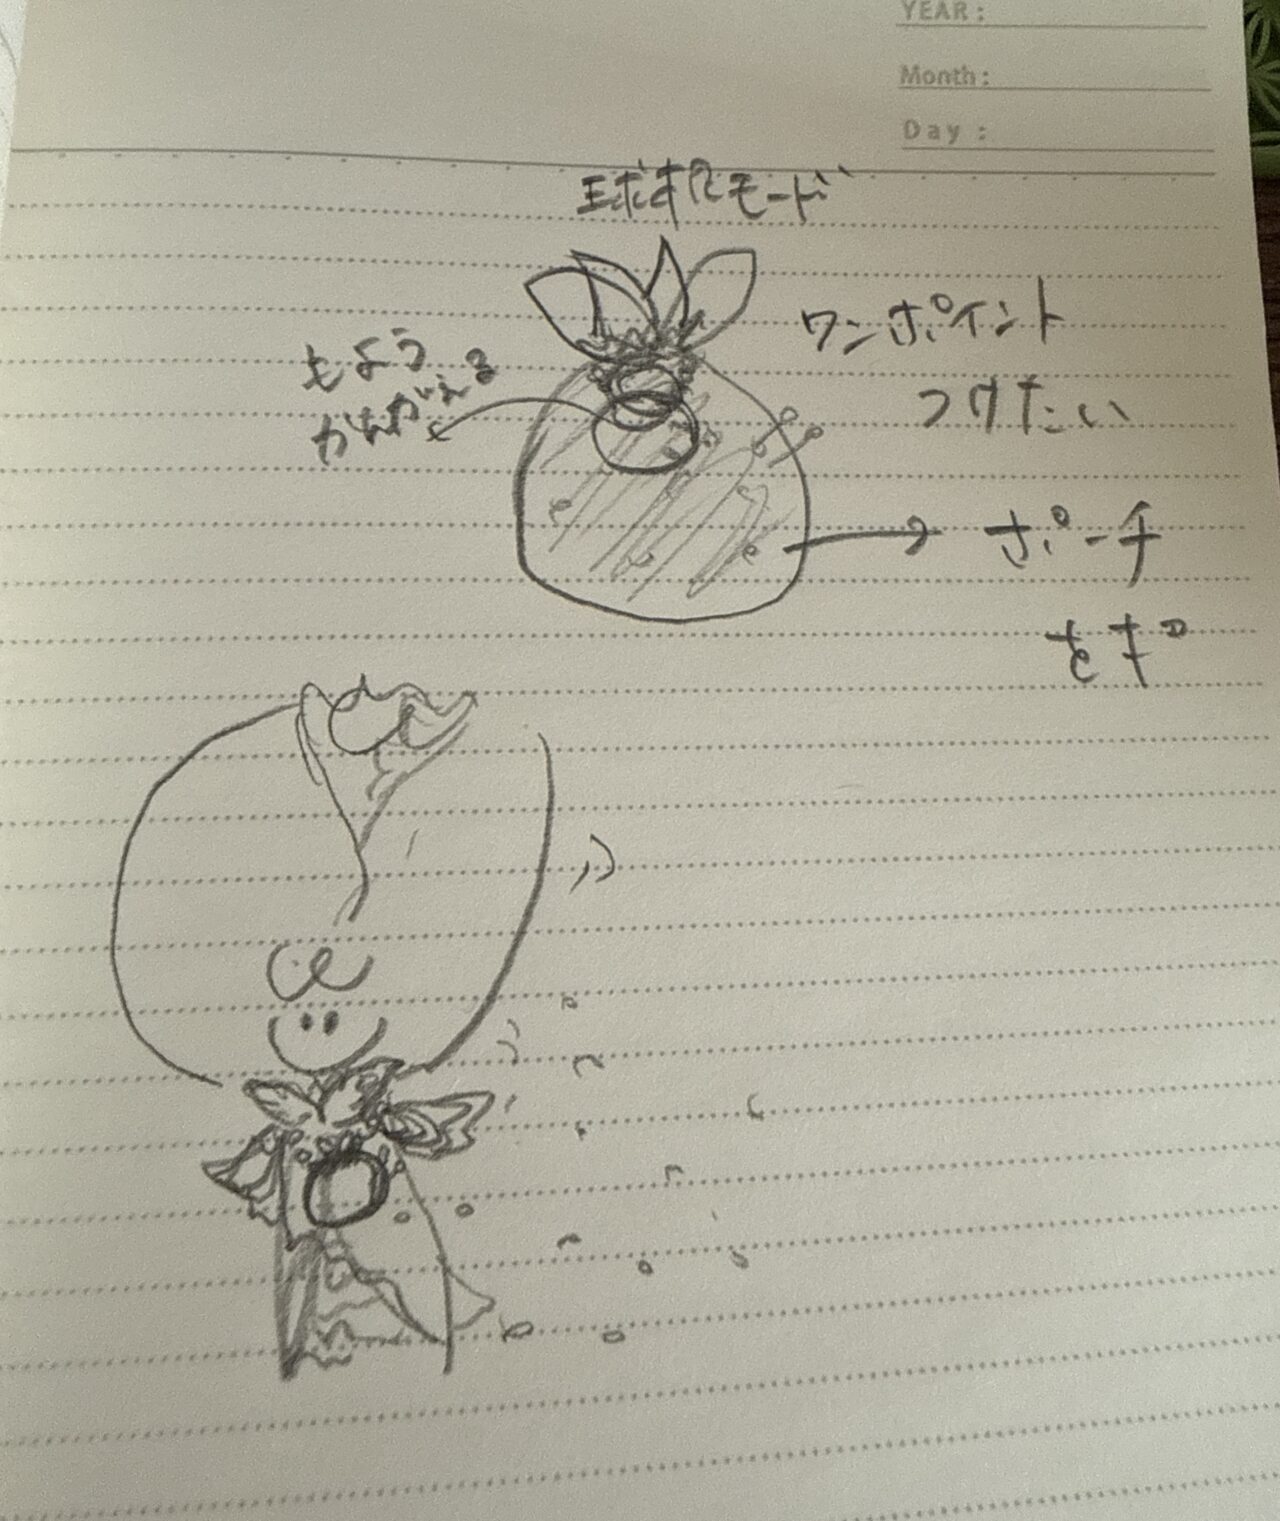 YEAR :
Month :
Day :
球体モード
ワンポイント
つけたい
もよう
かんがえる
ポーチ